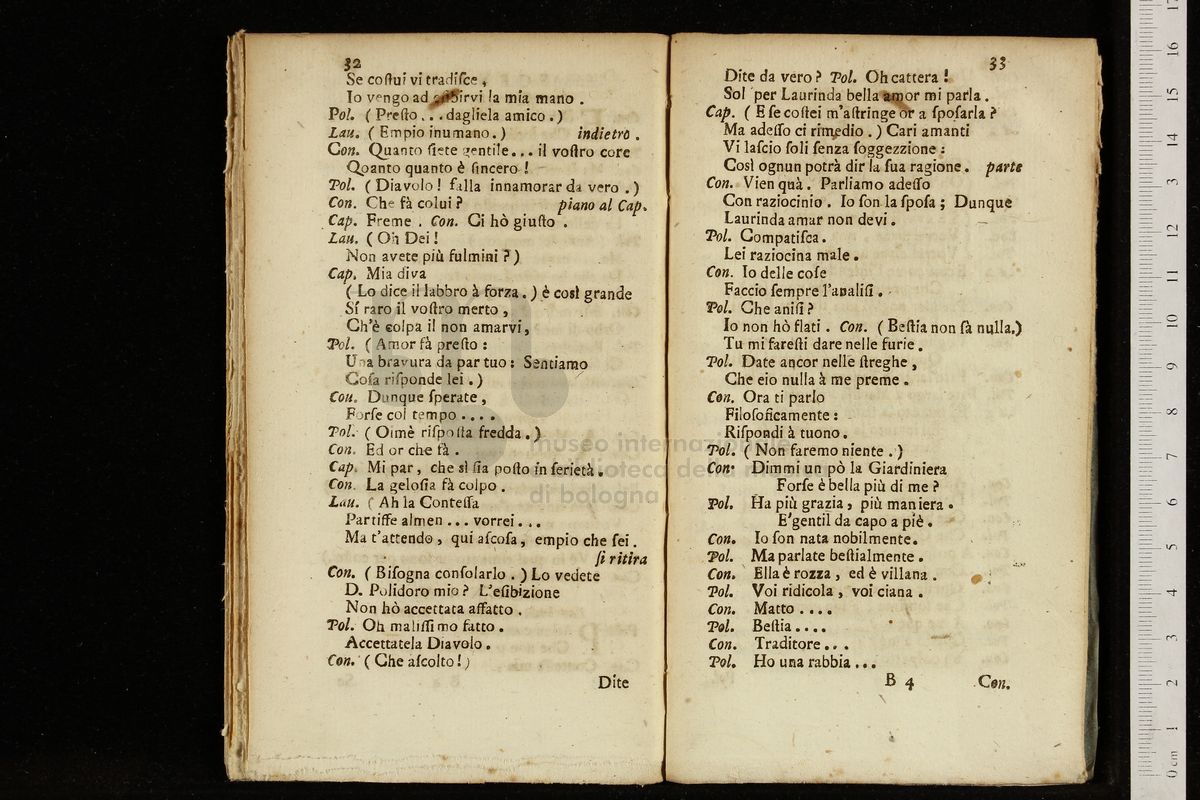 32
Se coſtui vi tradiſce,
Io vengo ad eſibirvi la mia mano.
Pol. (Preſto... dagliela amico.)
Lau. (Empio inumano.) indietro.
Con. Quanto ſiete gentile... il voſtro core
Qoanto quanto è ſincero!
Pol. (Diavolo! falla innamorar da vero.)
Con. Che fà colui? piano al Cap.
Cap. Freme. Con. Ci hò giuſto.
Lau. (Oh Dei!
Non avete più fulmini?)
Cap. Mia diva
(Lo dice il labbro à forza.) è così grande
Sí raro il voſtro merto,
Ch'è colpa il non amarvi,
Pol. (Amor fà preſto:
Una bravura da par tuo: Sentiamo
Coſa riſponde lei.)
Con. Dunque ſperate,
Forſe col tempo....
Pol. (Oimè riſpoſta fredda.)
Con. Ed or che fà.
Cap. Mi par, che sì ſia poſto in ſerietà.
Con. La geloſia fà colpo.
Lau. (Ah la Conteſſa
Partiſſe almen... vorrei...
Ma t'attendo, qui aſcoſa, empio che ſei.
ſi ritira
Con. (Biſogna conſolarlo.) Lo vedete
D. Polidoro mio? L'eſibizione
Non hò accettata affatto.
Pol. Oh maliſſimo fatto.
Accettatela Diavolo.
Con. (Che aſcolto!)
Dite
33
Dite da vero? Pol. Oh cattera!
Sol per Laurinda bella amor mi parla.
Cap. (E ſe coſtei m'aſtringe or a ſpoſarla?
Ma adeſſo ci rimedio.) Cari amanti
Vi laſcio ſoli ſenza ſoggezzione:
Così ognun potrà dir la ſua ragione. parte
Con. Vien quà. Parliamo adeſſo
Con raziocinio. Io ſon la ſpoſa; Dunque
Laurinda amar non devi.
Pol. Compatiſca.
Lei raziocina male.
Con. Io delle coſe
Faccio ſempre l'analiſi.
Pol. Che aniſi?
Io non hò flati. Con. (Beſtia non ſà nulla.)
Tu mi fareſti dare nelle furie.
Pol. Date ancor nelle ſtreghe,
Che eio nulla à me preme.
Con. Ora ti parlo
Filoſoficamente:
Riſpondi à tuono.
Pol. (Non faremo niente.)
Con. Dimmi un pò la Giardiniera
Forſe è bella più di me?
Pol. Ha più grazia, più maniera.
E'gentil da capo a piè.
Con. Io ſon nata nobilmente.
Pol. Ma parlate beſtialmente.
Con. Ella è rozza, ed è villana.
Pol. Voi ridicola, voi ciana.
Con. Matto....
Pol. Beſtia....
Con. Traditore...
Pol. Ho una rabbia...
B 4 Con.
museo internazionale
biblioteca della m
di bologna